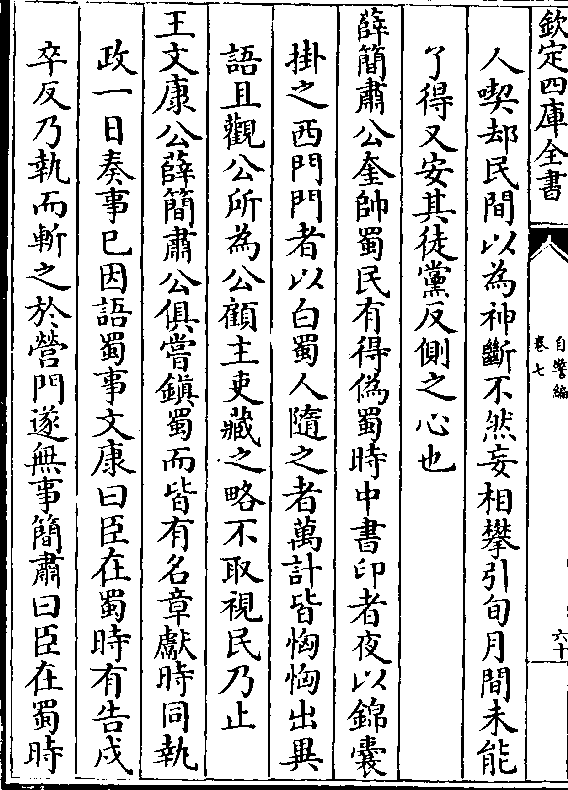 欽定四庫全書
自警編
卷七
六十
人喫却民間以為神斷不然妄相攀引旬月間未能
了得又安其徒黨反側之心也
薛簡肅公奎帥蜀民有得偽蜀時中書印者夜以錦囊
掛之西門門者以白蜀人隨之者萬計皆恟恟出異
語且觀公所為公顧主吏藏之略不取視民乃止
王文康公薛簡肅公俱嘗鎮蜀而皆有名章獻時同執
政一日奏事已因語蜀事文康曰臣在蜀時有告戍
卒反乃執而斬之於營門遂無事簡肅曰臣在蜀時